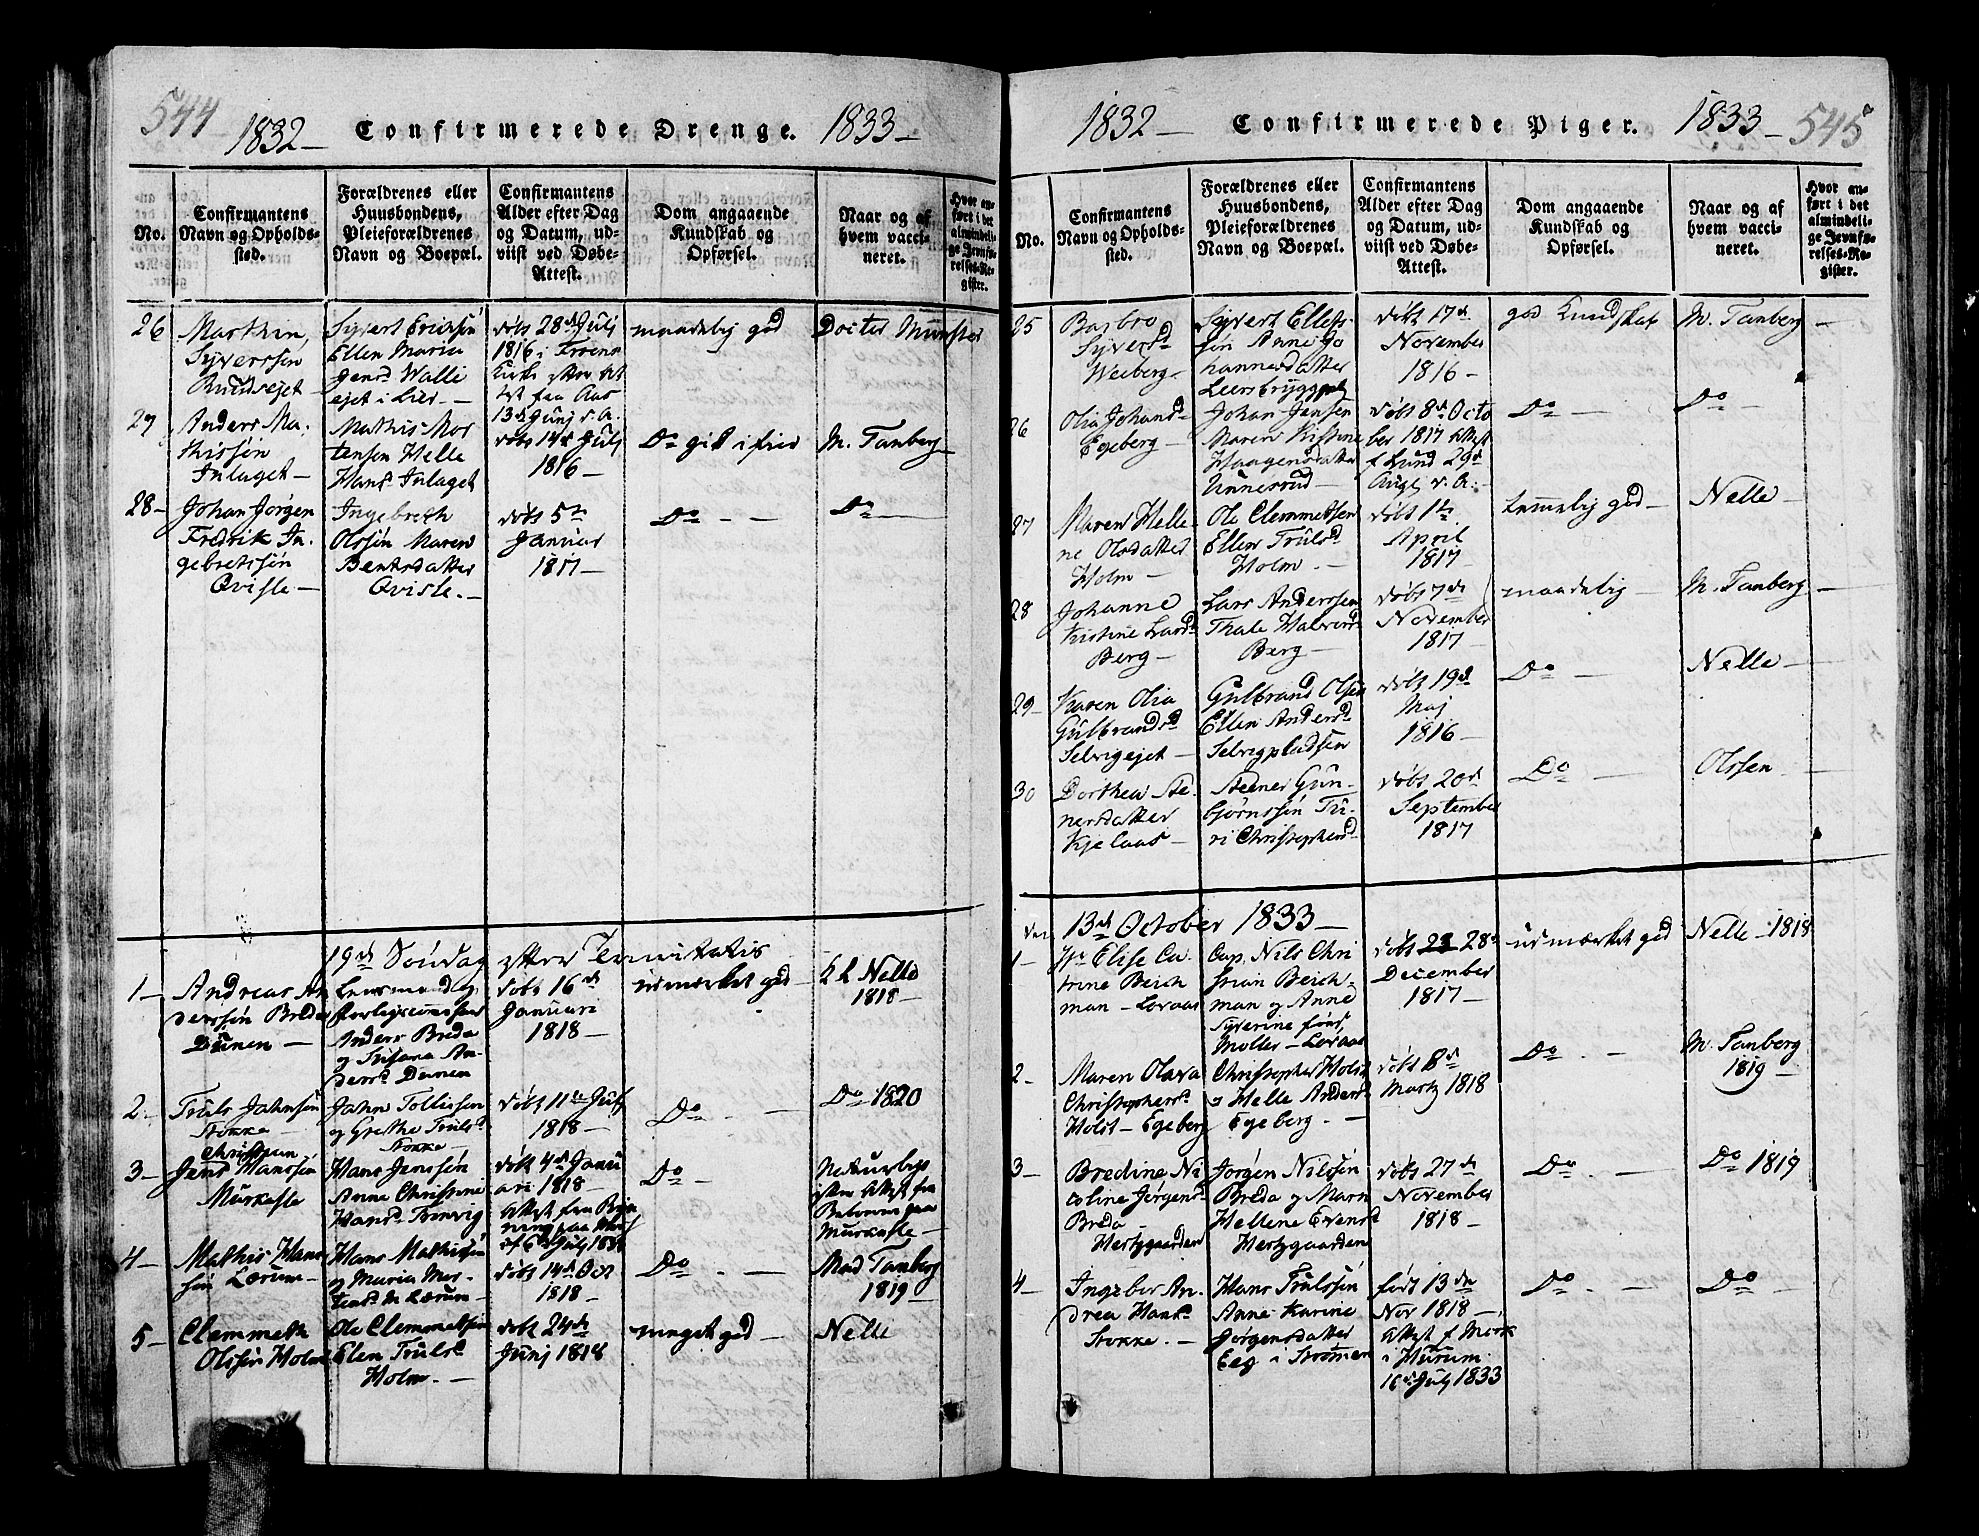 544 1832 – Confirmerede Drenge. 1833 –
No.
Confirmantens
Navn og Opholds-
sted.
Forældrenes eller
Huusbondens,
Pleieforældrenes
Navn og Boepæl.
Confirmantens
Alder efter Dag
og Datum, ud-
viist ved Døbe-
Attest.
Dom angaaende
Kundskab og
Opførsel.
Naar og af
hvem vacci-
neret.
Hvor an-
ført i det
almindeli-
ge Jevnfø-
relses-Re-
gister.
26
Marthin
Syverssen
Syvert Erikssen
Ellen Maria
Jensd Walli
ejet i Lier –
døbt 28d Julj
1816 i
13d Junj d. A.
maadelig god
Doctor Munster
27
Anders Ma-
thissøn
Inlaget –
Mathis Mor
tensen Helle
Hansd Inlaget
døbt 14d Julj
1816 –
Do
M. Tanberg –
28 –
Johan Jørgen
Fredrik In-
gebretssøn
Qvisle –
Ingebreth
Olssøn Maren
Bentsdatter
Qvisle. –
døbt 5te
Januar
1817 –
Do – –
Do –
19de Søndag efter Trinitatis
1 –
Andreas An
derssøn Breda
Dünen –
Lensmand og
Anders Breda
og Susana An-
dersd Dünen
døbt 16de
Januari
1818 –
udmærket god –
L Nelle
1818 –
2.
Truls Jahnsøn
Stokke –
Jahn Tollefsen
og Grethe Trulsd
Stokke –
døbt 11te Julj
1818 –
Do –
Do 1820
3 –
Christian
Jens Hanssøn
Murkasle
Hans Jenssøn
Anna Christine
Hansd Tronvig
døbt 4de Janu
ari 1818 –
Attest fra
Do –
Naturlige
Attest fra
paa
Murkasle –
4 –
Mathis Hans
søn Lærum –
Hans Mathissøn
og Maria Mor-
tensd Lærum –
døbt 14de Oct
1818 –
Do – –
Mad Tanberg
1819 –
5 –
Clemmeth
Olssøn Holm
Ole Clemmetsøn
Elen Trulsd
Holm. –
døbt 24de
Junj 1818
meget god –
Nelle
1832 – Confirmerede Piger. 1833 – 545
No.
Confirmantens
Navn og Opholds-
sted.
Forældrenes eller
Huusbondens,
Pleieforældrenes
Navn og Boepæl.
Confirmantens
Alder efter Dag
og Datum, ud-
viist ved Døbe-
Attest.
Dom angaaende
Kundskab og
Opførsel.
Naar og af
hvem vacci-
neret.
Hvor an-
ført i det
almindeli-
ge Jevnfø-
relses-Re-
gister.
25
Barbro
Syversd
Weeberg –
Syvert Ellefs-
søn Anne Jo
hannesdatter
døbt 17de
November
1816 –
god Kundskab
M. Tanberg –
26
Olia Johansd
Egeberg –
Johan Jensen
Maren Kistine
Haagensdatter
Unnerud –
døbt 8de Octo
ber 1817 Attest
f Lund 29d
Augt d. A. –
Do –
Do –
27
Maren Helle-
ne Olsdatter
Holm –
Ole Clemmetsen
Ellen Trulsd
Holm. –
døbt 1te
April
1817 –
temmelig god –
Nelle –
28
Johanne
Kistine Larsd
Berg –
Lars Anderssen
Thale Halvorsd
Berg –
døbt 7de
November
1817 –
maadelig –
M. Tanberg –
29 –
Karen Olia
Gulbrandsd
Selvigejet –
Gulbrand Olsen
Ellen Andersd
Selvigpladsen
døbt 19d
Maj
1816 –
Do –
Nelle –
30
Dorthea Ste-
nersdatter
Kjelaas –
Steener Gun-
bjørnssøn Tu-
ri Christophersd
døbt 20d
September
1817 –
Do –
Olssen –
13de October 1833 –
1 –
Elise Ca-
trine Beich
man – Loraas
Cap. Nils Chri
stian Beich-
man og Anne
Syverine født
Møller – Loraas
døbt 28d
December
1817 –
udmærket god
Nelle – 1818
2 –
Maren Olava
Christophersd
Holst – Egeberg
Christopher Holst
og Helle Andersd
Egeberg. –
døbt 8d
Martz 1818
Do –
M. Tanberg
1819 –
3 –
Bredine Ni
coline Jørgensd
Breda –
Hertzgaarden
Jørgen Nilssøn
Breda og Marn
Hellene Evensd
Hertzgaarden
døbt 27de
November
1818 –
Do –
Do 1819
4 –
Ingeber An-
drea Hansd
Stokke. –
Hans Trulssøn
Anne Karine
Jørgensdatter
Eeg i Strømm
født 13de
Nov 1818 –
Attest f Mørk
i Hurum
16de Julj 1833
Do –
Do –